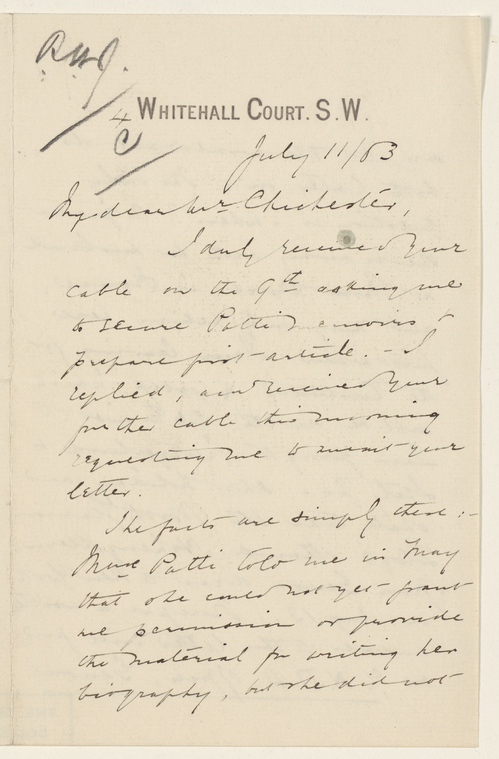 RWG.
4
C
WHITEHALL COURT. S.W.
July 11/03
My dear Mr Chichester,
I duly received your
cable on the 9th asking me
to secure Patti memoirs &
prepare first article. - I
replied, and received your
further cable this morning
requesting me to await your
letter.
The facts are simply these :-
Mme Patti told me in May
that she could not yet grant
me permission or provide
the material for writing her
biography, but she did not